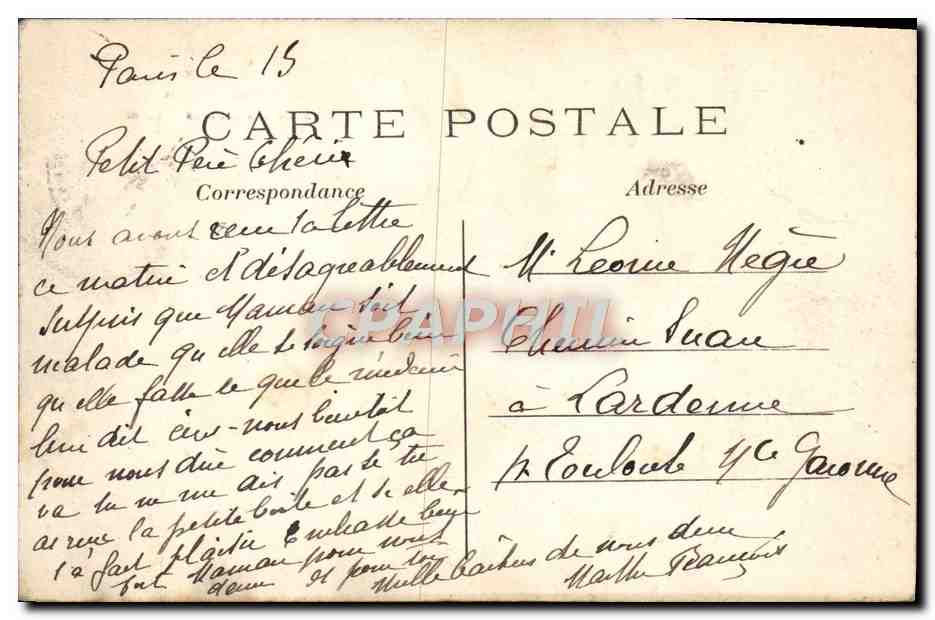 Paris le 15
CARTE POSTALE
Petit Père Chérie
Correspondance
Nous avons reçu ta lettre
ce matin et désagreablement
surpris que Maman soit
malade qu'elle se soigne bien
qu'elle fasse ce que le médecin
lui dit écris-nous bientôt
pour nous dire comment ça
va tu ne me dis pas si tu
as reçu la petite boîte et si elle
t'a fait plaisir Embrasse bien
fort Maman pour nous
deux et pour toi
Mille baisers de nous deux
Marthe François
Adresse
Mr Leonie Nègre
Chemin
à Lardenne
pr Toulouse Hte Garonne
CPAPHIL